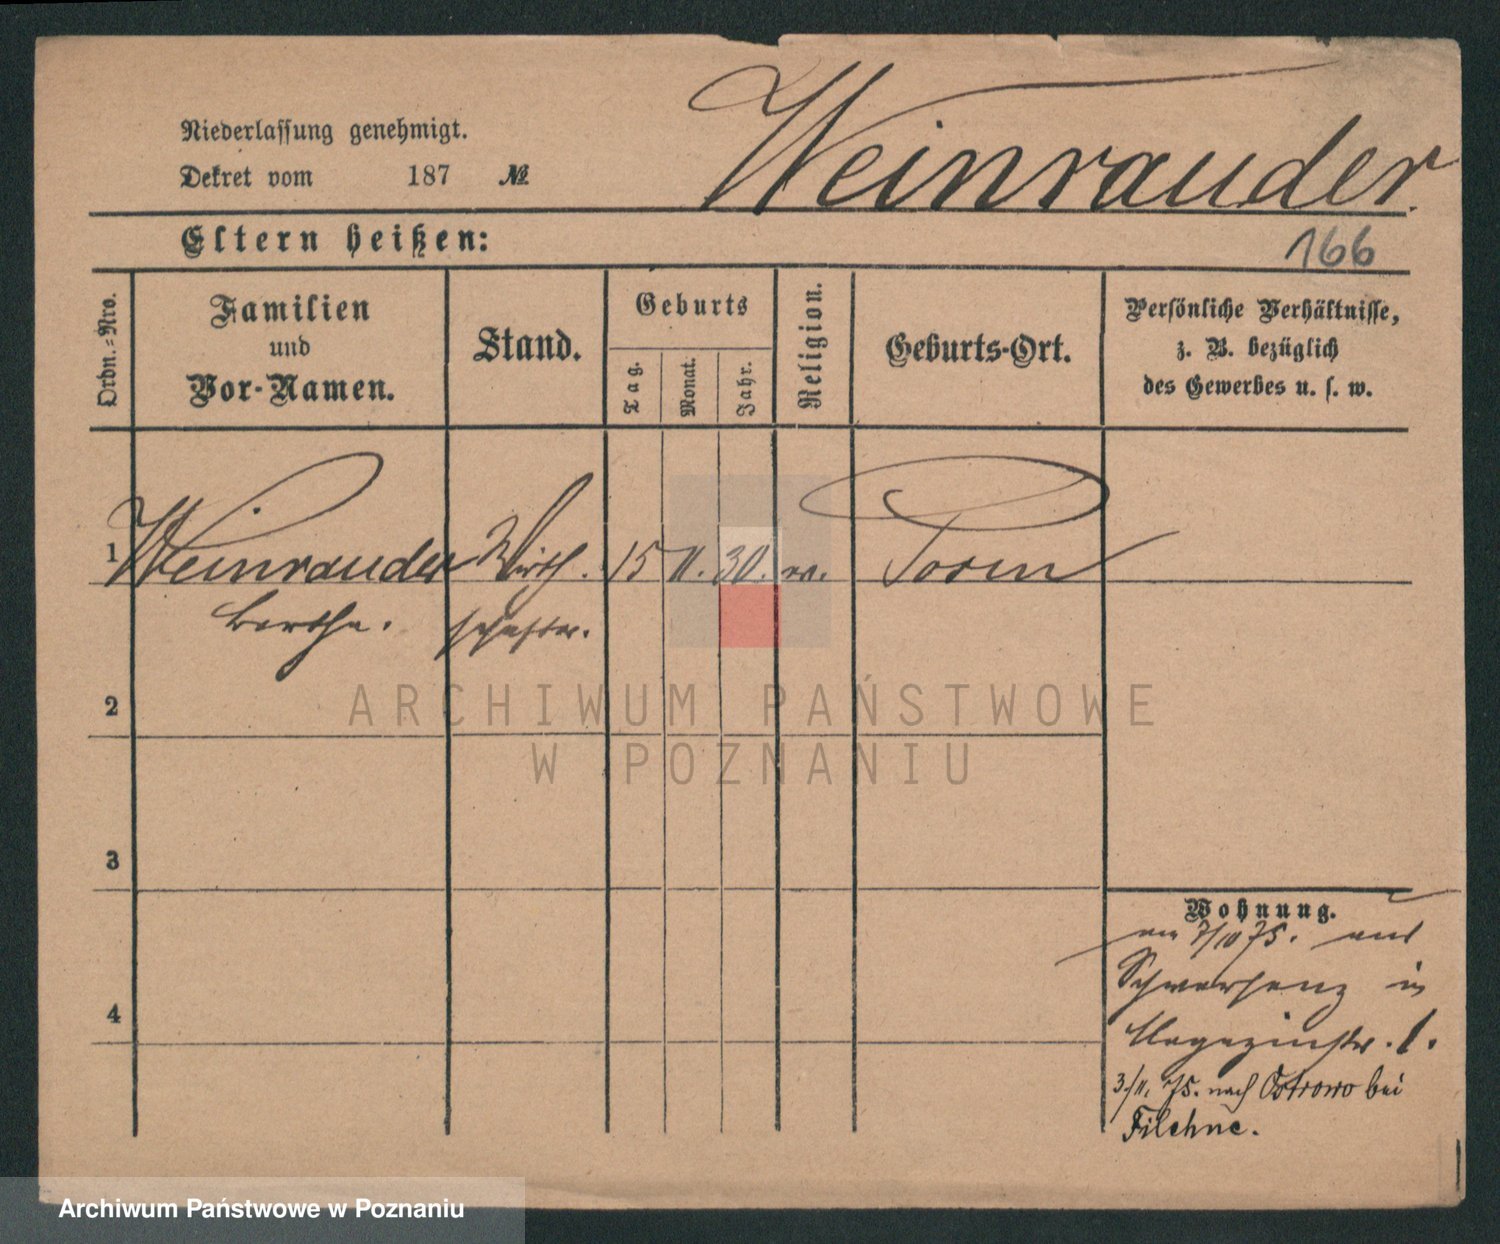 Niederlassung genehmigt.
Dekret vom 187 №
Weinrauder.
Eltern heißen:
166
Ordn.=Nro.
Familien
und
Vor-Namen.
Stand.
Geburts
Tag.
Monat.
Jahr.
Religion.
Geburts-Ort.
Persönliche Verhältnisse,
z. B. bezüglich
des Gewerbes u. s. w.
1 Weinrauder Wirth. 15 11. 30.
Bertha. schafter.
2
3
4
Wohnung.
am 7/10 75. aus
Schwersenz in
Magazinstr. 1.
3./11. 75. nach Ostrowo bei
Filehne.
ARCHIWUM PAŃSTWOWE
W POZNANIU
Archiwum Państwowe w Poznaniu